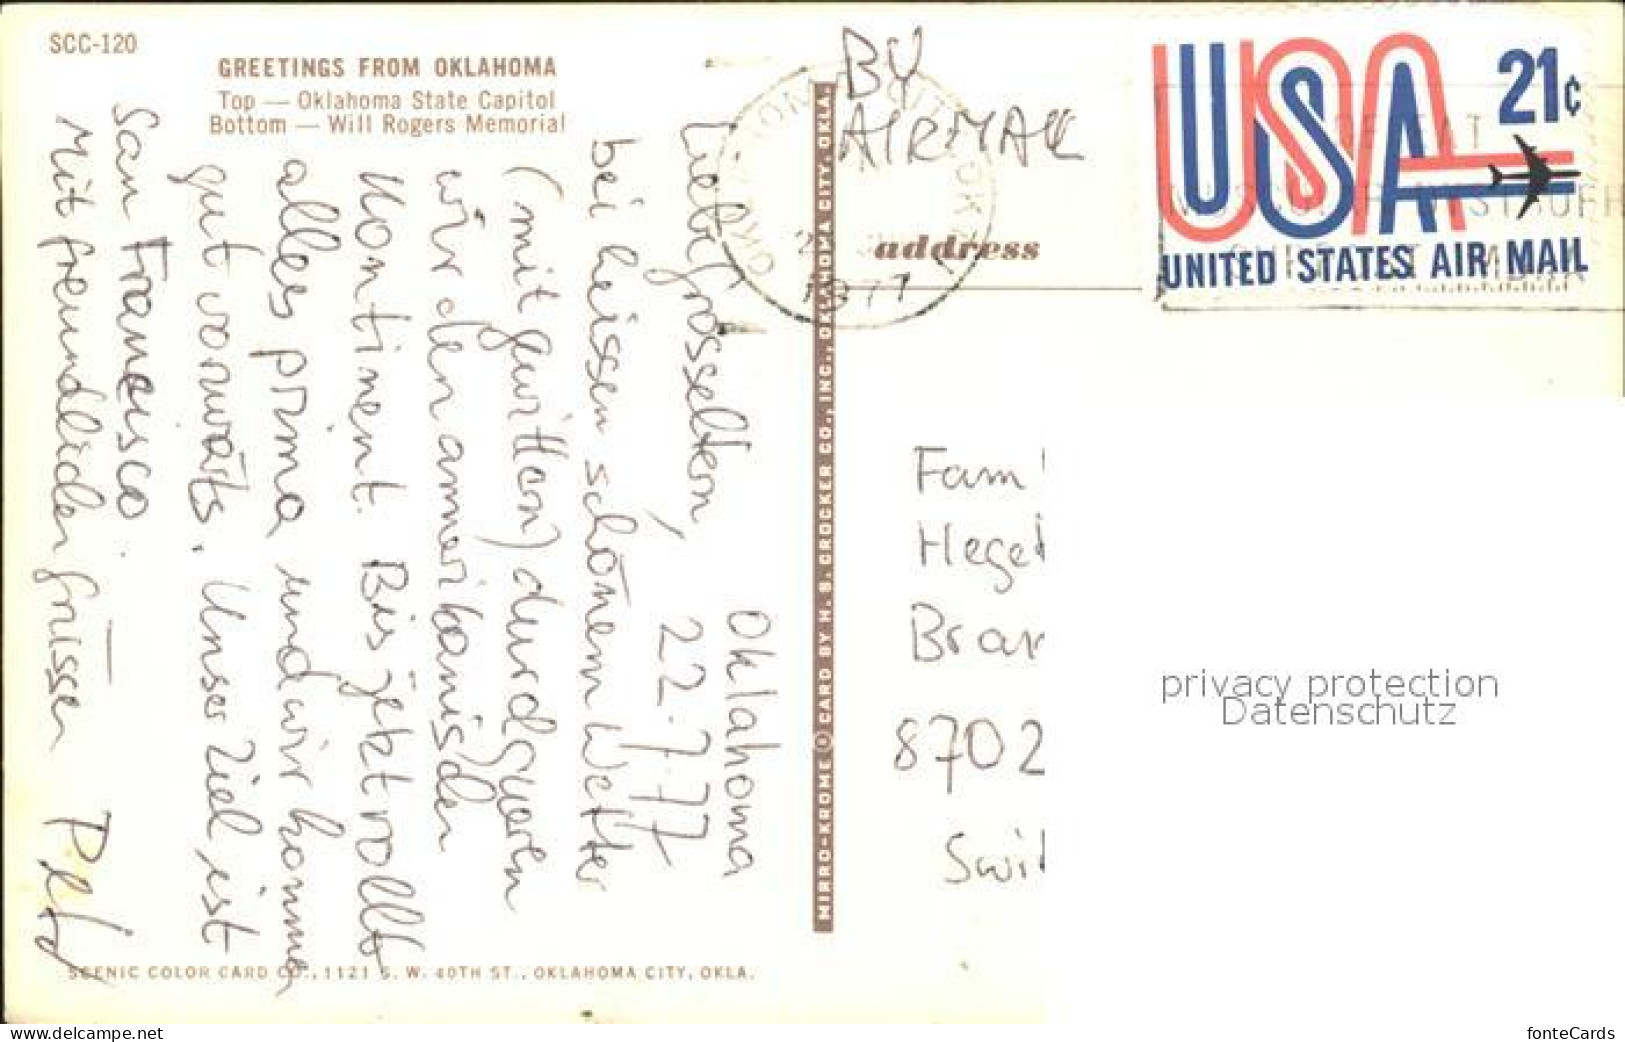 SCC-120
GREETINGS FROM OKLAHOMA
Top — Oklahoma State Capitol
Bottom — Will Rogers Memorial
Oklahoma
22.7.77
Liebe Grosseltern,
bei heissen schönem Wetter
(mit gewittern) durchqueren
wir den ammerikanischen
Kontinent. Bis jetzt rollt
alles prima und wir kommen
gut vorwärts. Unser Ziel ist
San Francisco
Mit freundlichen grüssen
SCENIC COLOR CARD CO., 1121 S. W. 40TH ST., OKLAHOMA CITY, OKLA.
MIRRO-KROME ® CARD BY H. S. CROCKER CO., INC., OKLAHOMA CITY, OKLA.
BY
AIRMAIL
address
1977
USA 21c
UNITED STATES AIR MAIL
Fam
Heget
Bran
8702
Swit
privacy protection
Datenschutz
www.delcampe.net
fonteCards